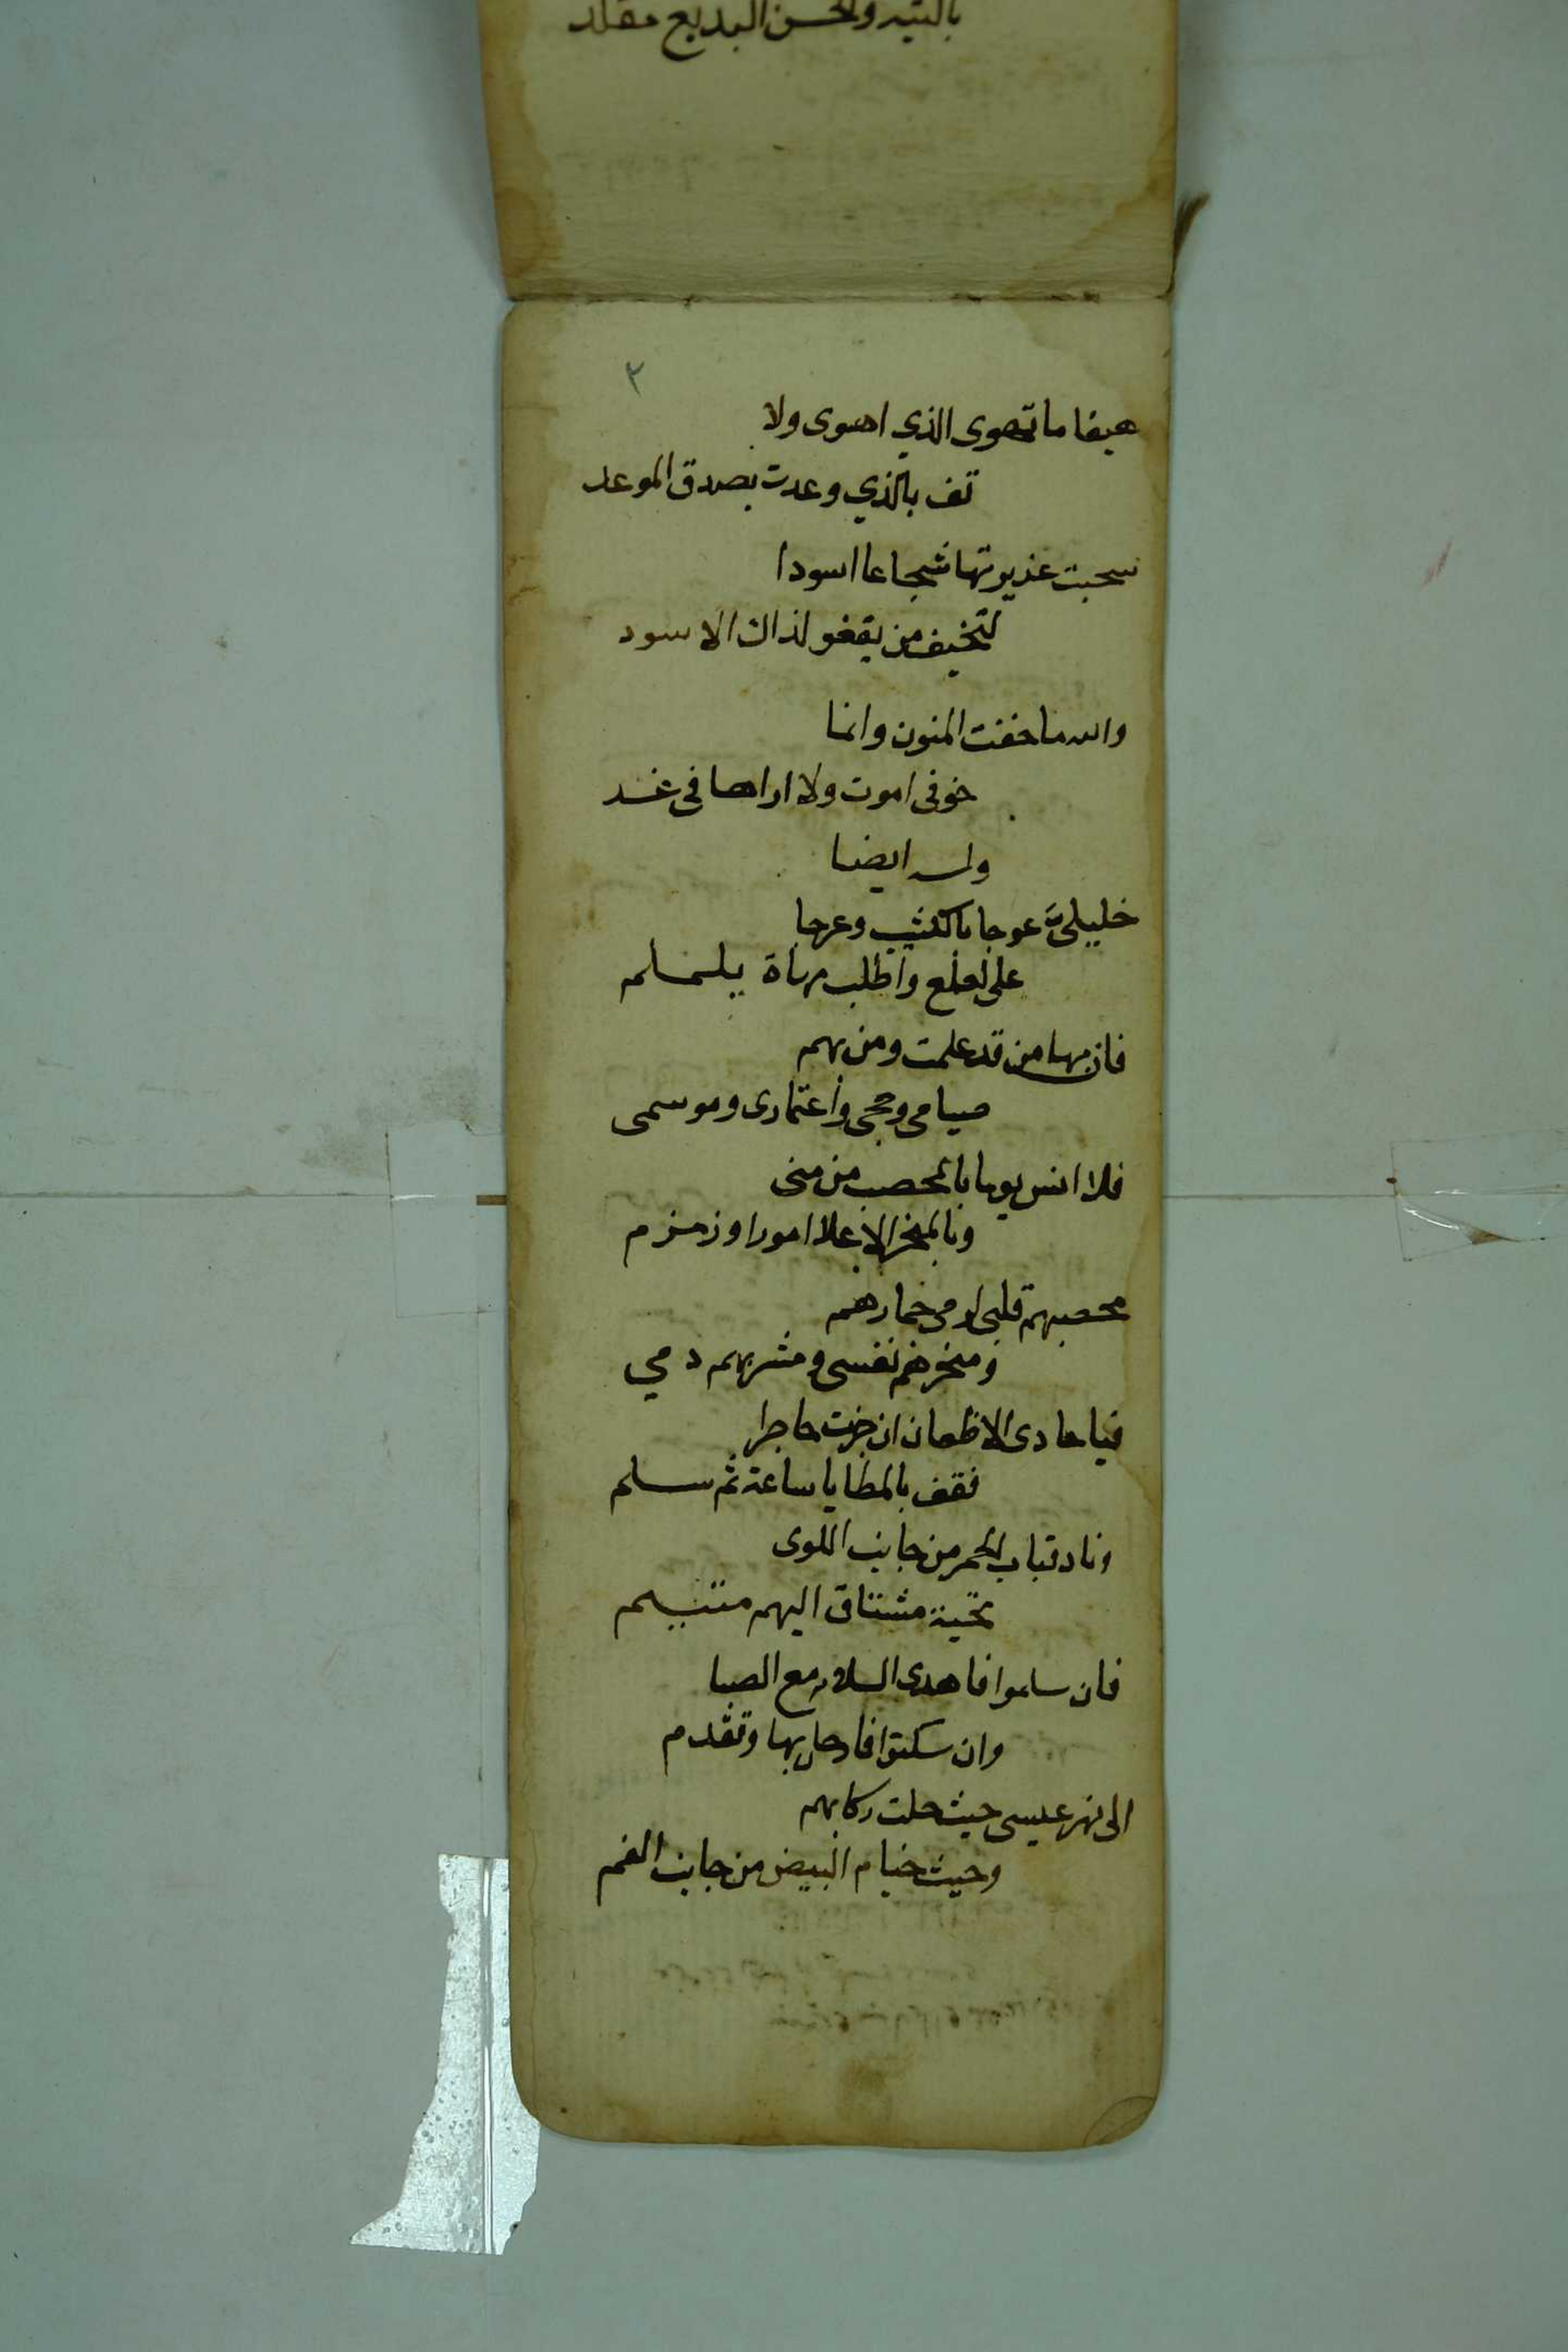 بالتيه والحسن البديع مقلد
٣
هيفا ما تهوى الذي اهوى ولا
تف بالذي وعدت بصدق الموعد
سحبت غديرتها شجاعا اسودا
لتخيف من يقفو لذاك الاسود
والله ما خفت المنون وانما
خوفى اموت ولا اراها فى غد
وله ايضا
خليلىَّ عوجا بالكثيب وعرجا
على لعلع واطلب مياه يلملم
فان بها من قد علمت ومن بهم
صيامى وحجى واعتمارى وموسمى
فلا انس يوما بالمحصب من منى
وبالمنحر الاعلا امورا وزمزم
محصبهم قلبى لرمى جمارهم
ومنحرهم نفسى ومشربهم دمي
فيا حادى الاظعان ان جزت حاجرا
فقف بالمطايا ساعة ثم سلم
وناد قباب الحمر من جانب اللوى
تحية مشتاق اليهم متيم
فان سلموا فاهدى السلام مع الصبا
وان سكتوا فارحل بها وتقدم
الى نهر عيسى حيث حلت ركابهم
وحيث خيام البيض من جانب الفم